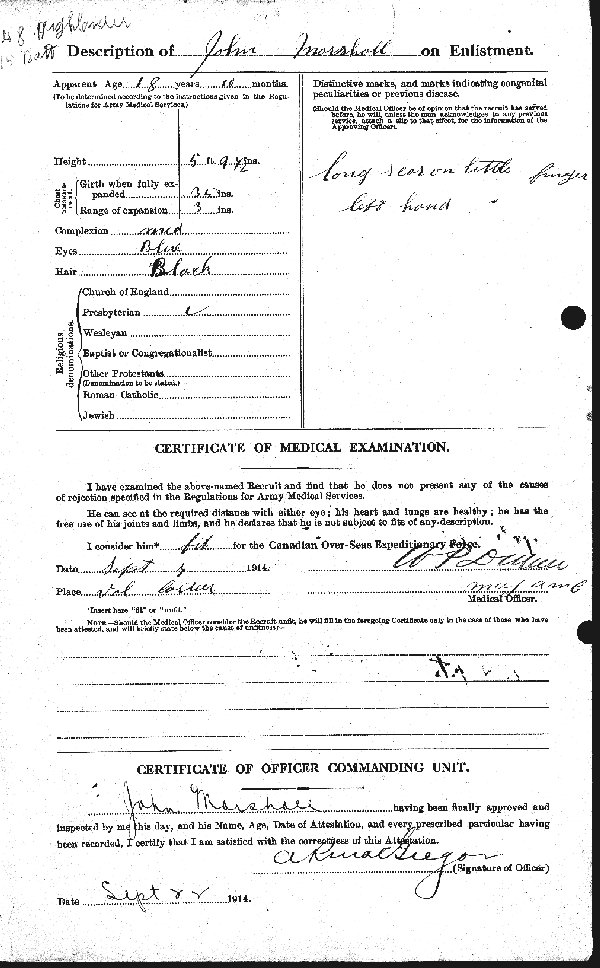 48 Highlander
15 Batt
Description of John Marshall on Enlistment.
Apparent Age 18 years 10 months.
(To be determined according to the instructions given in the Regulations for Army Medical Services.)
Height 5 ft. 9 1/2 ins.
Chest measurement.
Girth when fully expanded 34 ins.
Range of expansion 3 ins.
Complexion med
Eyes Blue
Hair Black
Religious denominations.
Church of England
Presbyterian
Wesleyan
Baptist or Congregationalist
Other Protestants
(Denomination to be stated.)
Roman Catholic
Jewish
Distinctive marks, and marks indicating congenital
peculiarities or previous disease.
(Should the Medical Officer be of opinion that the recruit has served
before, he will, unless the man acknowledges to any previous
service, attach a slip to that effect, for the information of the
Approving Officer.)
long scar on little finger
left hand
CERTIFICATE OF MEDICAL EXAMINATION.
I have examined the above-named Recruit and find that he does not present any of the causes
of rejection specified in the Regulations for Army Medical Services.
He can see at the required distance with either eye; his heart and lungs are healthy; he has the
free use of his joints and limbs, and he declares that he is not subject to fits of any description.
I consider him* fit for the Canadian Over-Seas Expeditionary Force.
Date Sept 1914.
Place Val Cartier
Medical Officer.
*Insert here "fit" or "unfit."
NOTE.—Should the Medical Officer consider the Recruit unfit, he will fill in the foregoing Certificate only in the case of those who have
been attested, and will briefly state below the cause of unfitness:—
CERTIFICATE OF OFFICER COMMANDING UNIT.
John Marshall having been finally approved and
inspected by me this day, and his Name, Age, Date of Attestation, and every prescribed particular having
been recorded, I certify that I am satisfied with the correctness of this Attestation.
(Signature of Officer)
Date Sept 22 1914.